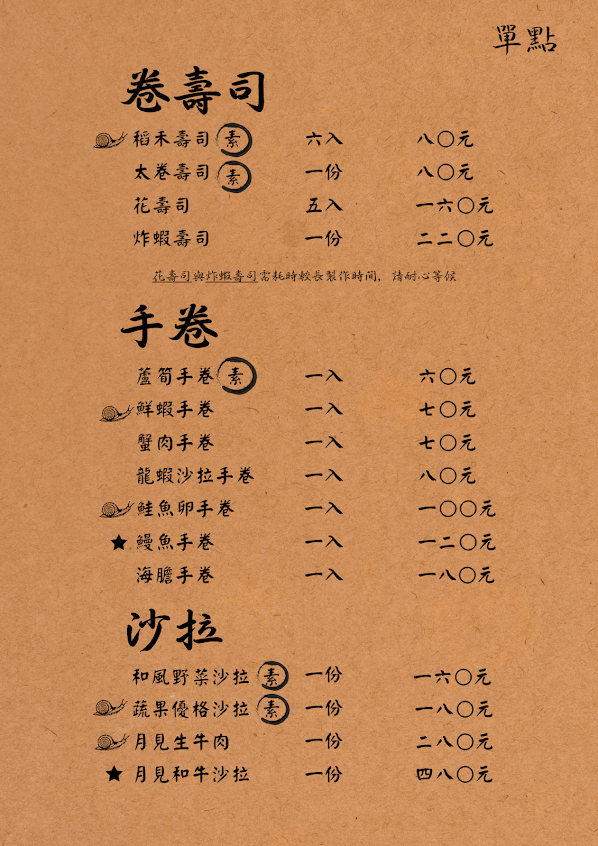 單點
卷壽司
稻禾壽司 素 六入 八〇元
太卷壽司 素 一份 八〇元
花壽司 五入 一六〇元
炸蝦壽司 一份 二二〇元
花壽司與炸蝦壽司需耗時較長製作時間，請耐心等候
手卷
蘆筍手卷 素 一入 六〇元
鮮蝦手卷 一入 七〇元
蟹肉手卷 一入 七〇元
龍蝦沙拉手卷 一入 八〇元
鮭魚卵手卷 一入 一〇〇元
鰻魚手卷 一入 一二〇元
海膽手卷 一入 一八〇元
沙拉
和風野菜沙拉 素 一份 一六〇元
蔬果優格沙拉 素 一份 一八〇元
月見生牛肉 一份 二八〇元
月見和牛沙拉 一份 四八〇元